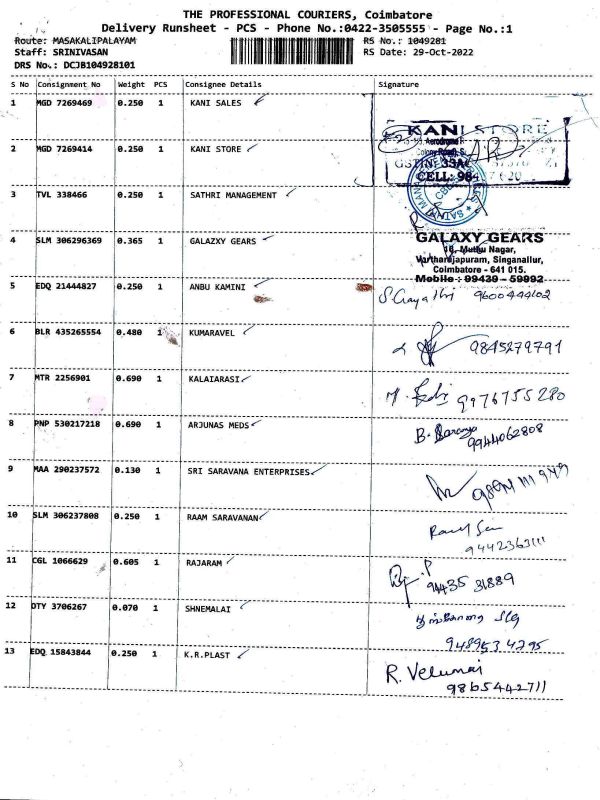 THE PROFESSIONAL COURIERS, Coimbatore
Delivery Runsheet - PCS - Phone No.:0422-3505555 - Page No.:1
Route: MASAKALIPALAYAM
RS No.: 1049281
Staff: SRINIVASAN
RS Date: 29-Oct-2022
DRS No.: DCJB104928101
S No Consignment No Weight PCS Consignee Details Signature
1 MGD 7269469 0.250 1 KANI SALES
KANI STORE
2 MGD 7269414 0.250 1 KANI STORE
CELL: 984
3 TVL 338466 0.250 1 SATHRI MANAGEMENT
4 SLM 306296369 0.365 1 GALAZXY GEARS
GALAXY GEARS
16, Muthu Nagar,
Vartharajapuram, Singanallur,
Coimbatore - 641 015.
Mobile: 99439 - 59992
5 EDQ 21444827 0.250 1 ANBU KAMINI
9600444102
6 BLR 435265554 0.480 1 KUMARAVEL
9845279791
7 MTR 2256901 0.690 1 KALAIARASI
9976755280
8 PNP 530217218 0.690 1 ARJUNAS MEDS
9944062808
9 MAA 290237572 0.130 1 SRI SARAVANA ENTERPRISES
10 SLM 306237808 0.250 1 RAAM SARAVANAN
9442363111
11 CGL 1066629 0.605 1 RAJARAM
94435 31889
12 DTY 3706267 0.070 1 SHNEMALAI
9489534295
13 EDQ 15843844 0.250 1 K.R.PLAST
R. Velumai
9865442711